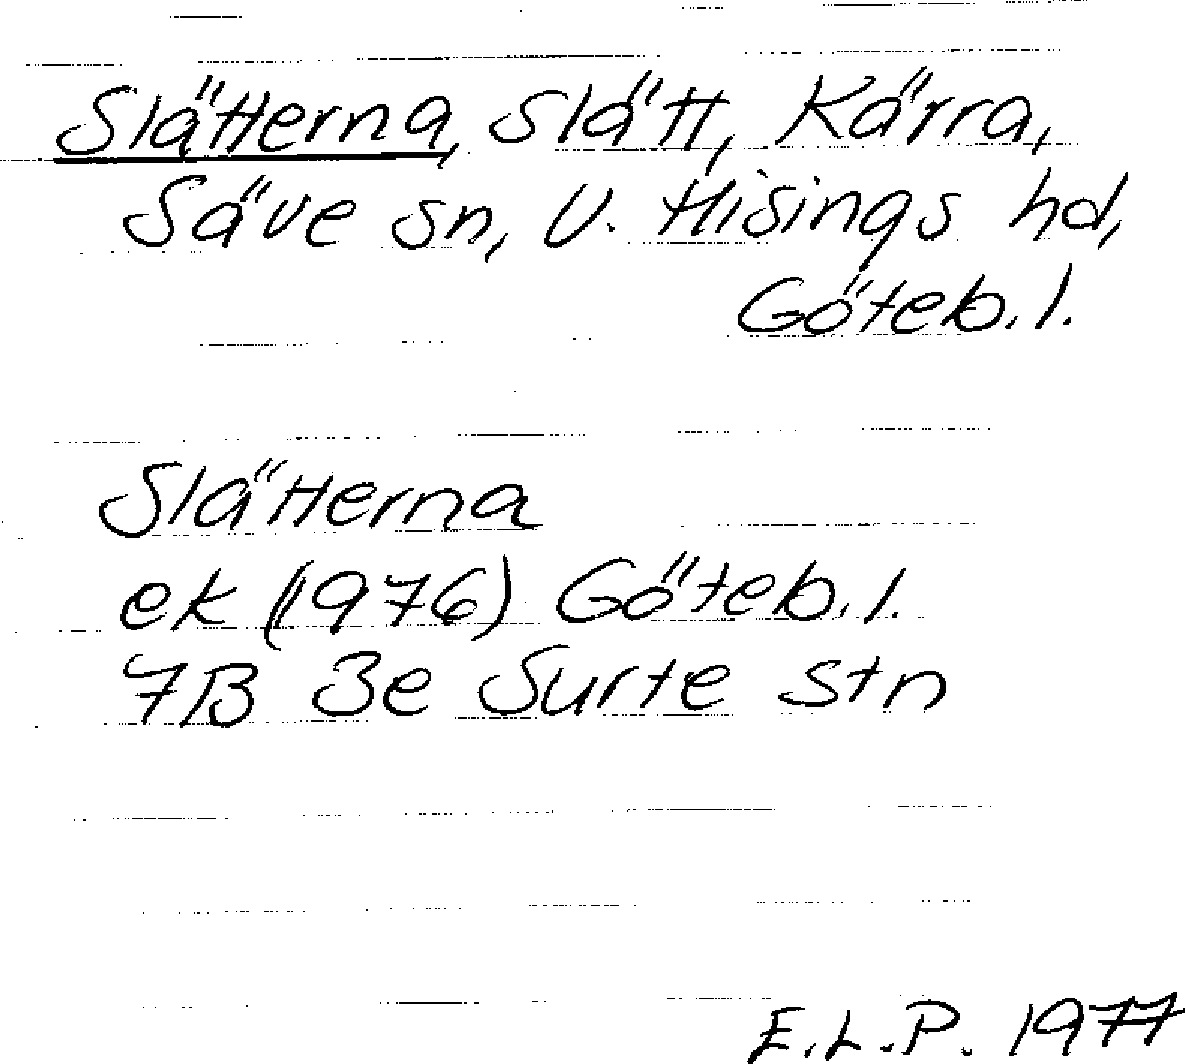 Slätterna, Slätt, Kärra,
Säve sn, V. Hisings hd,
Göteb. l.
Slätterna
ek (1976) Göteb. l.
7B 3e Surte stn
E.L.P. 1977